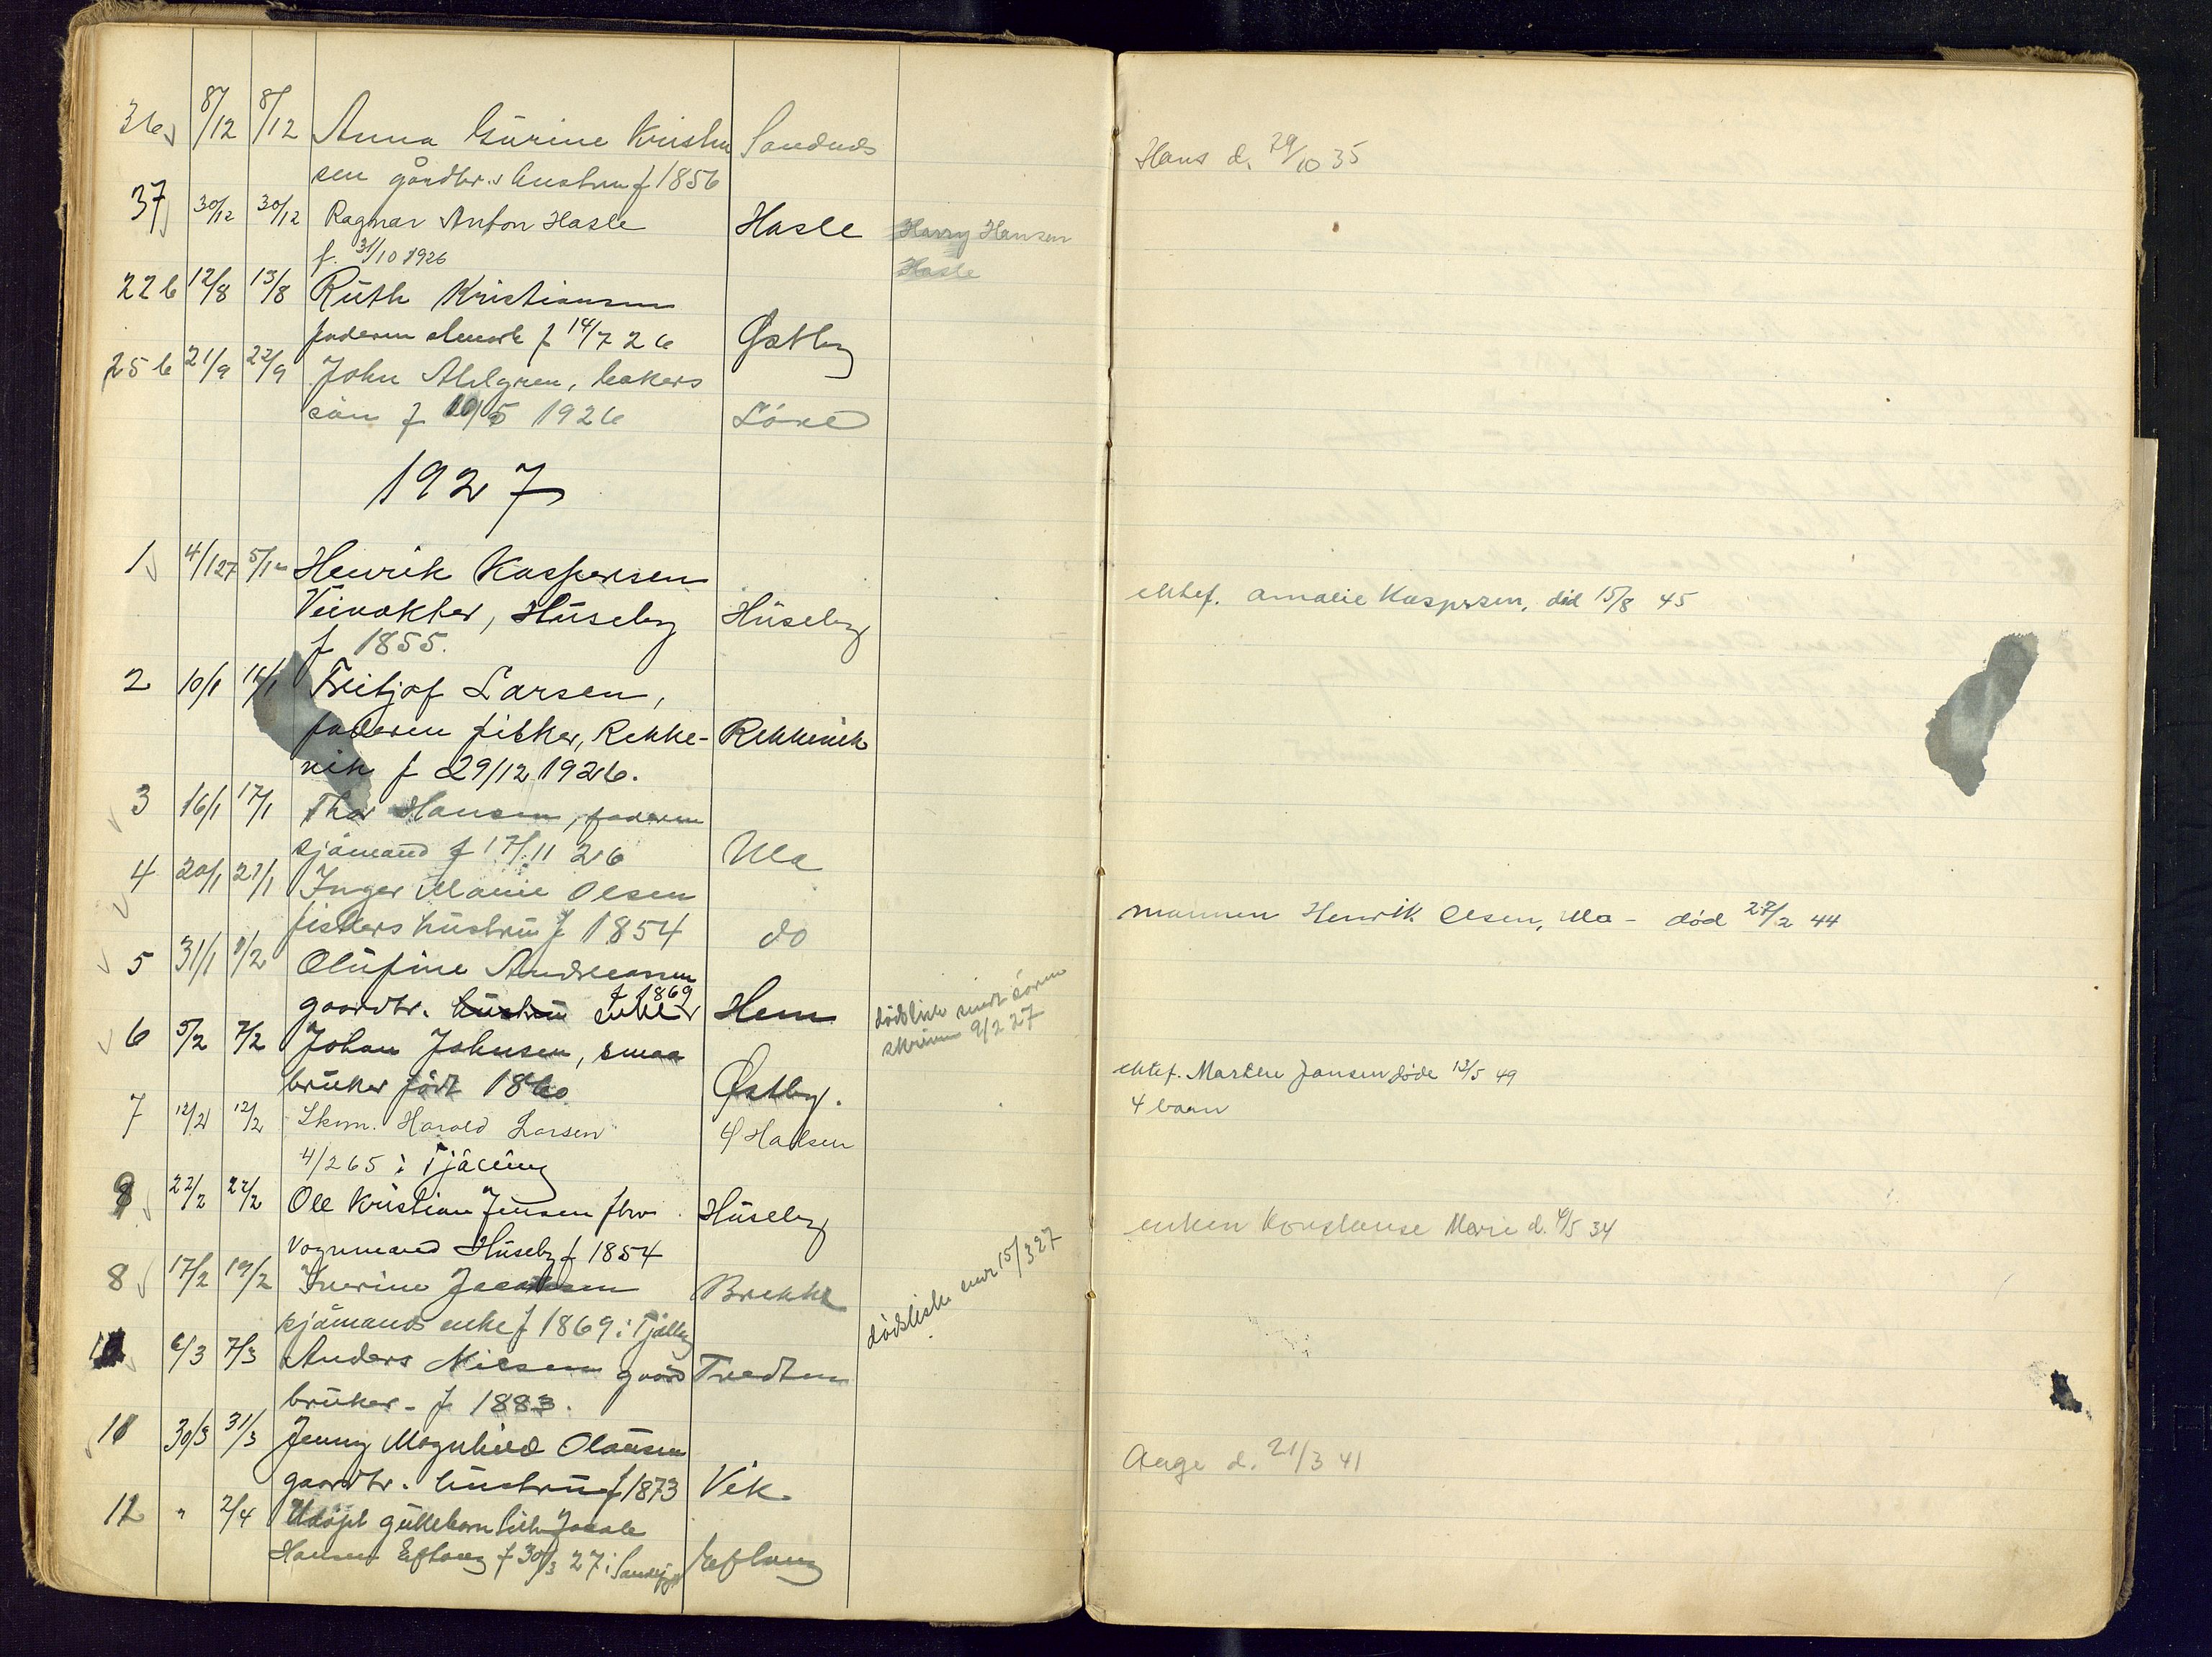 36 8/12 8/12 Anna Gurine Kristen Sandnes
sen gårdbr.s hustru f 1856
37 30/12 30/12 Ragnar Anton Hasle Hasle Harry Hansen
f. 31/10 1926 Hasle
22b 12/8 13/8 Ruth Kristiansen
faderen f 14/7 26 Østby
25b 21/9 22/9 John Ahlgren, bakers
sön f 10/5 1926
1927
1 4/1 27 5/1 Henrik Kaspersen
Veivokter, Huseby Huseby
f 1855.
2 10/1 14/1 Fritjof Larsen,
faderen fisker, Rekke- Rekkevik
vik f 29/12 1926.
3 16/1 17/1 Thor Hansen, faderen
sjömand f 17/11 26 Ula
4 20/1 21/1 Inger Marie Olsen
fiskers hustru f 1854 do
5 31/1 1/2 Olufine Andreassen
gaardbr. hustru enke f 1869 Hem dödsliste sendt soren
skriveren 9/2 27
6 5/2 7/2 Johan Johnsen, smaa
bruker född 1860 Østby.
7 12/2 12/2 Skom. Harald Larsen Halsen
4/2 65 i Tjöling
9 22/2 22/2 Ole Kristian Jensen fhv. Huseby
vognmand Huseby f 1854
8 17/2 19/2 Iverine Jacobsen Brekke
sjömands enke f 1869 i Tjölling dödsliste send 15/3 27
10 6/3 7/3 Anders Nilsen gaard Tvedten
bruker - f 1883.
11 30/3 31/3 Jenny Magnhild Olausen
gaardbr. hustru f 1873 Vik
12 " 2/4 Udöpt guttebarn Jacob
Hansen Eftang f 30/3 27 i Sandefj. Eftang
Hans d. 29/10 35
ektef. Amalie Kaspersen, död 15/8 45
mannen Henrik Olsen, Ula - død 27/2 44
ektef. Marthe Jansen døde 13/5 49
4 barn
enken Konstanse Marie d. 9/5 34
Aage d. 21/3 41